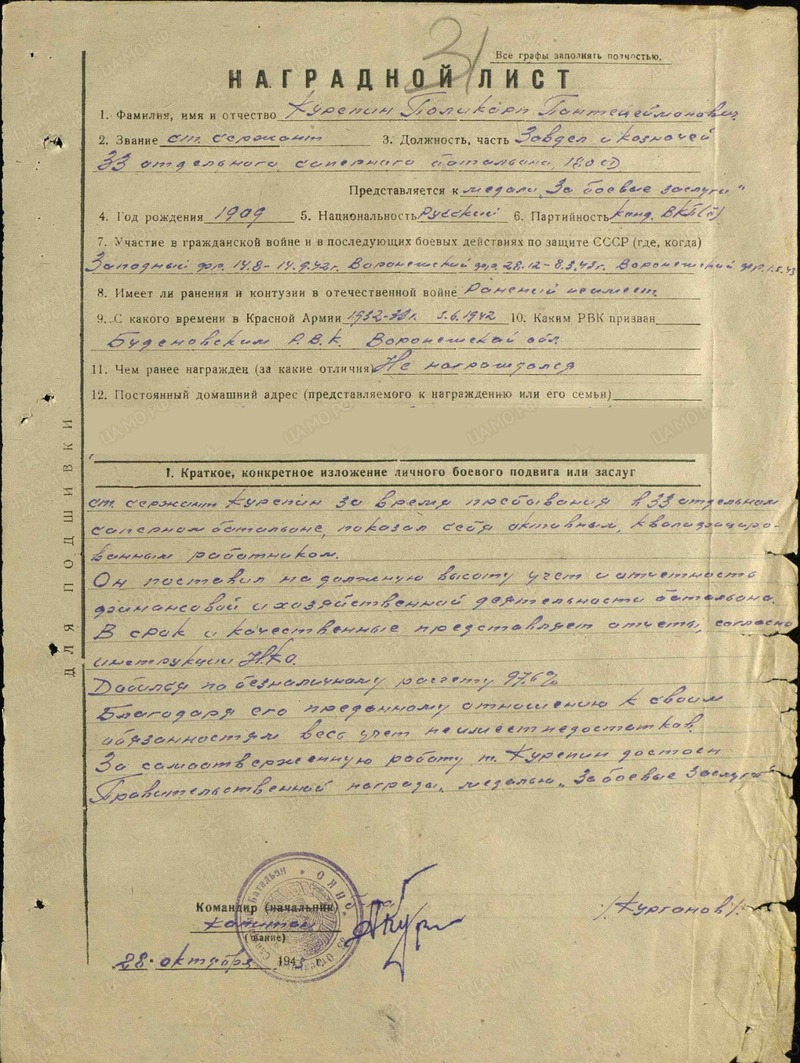 31
Все графы заполнять полностью.
НАГРАДНОЙ ЛИСТ
1. Фамилия, имя и отчество Курепин Поликарп Пантелеймонович
2. Звание ст. сержант 3. Должность, часть Завдел и казначей
33 отдельного саперного батальона 180 СД
Представляется к медали „За боевые заслуги"
4. Год рождения 1909 5. Национальность Русский 6. Партийность канд. ВКП(б)
7. Участие в гражданской войне и в последующих боевых действиях по защите СССР (где, когда)
Западный фр. 14.8 - 14.9.42г. Воронежский фр. 28.12 - 8.3.43г. Воронежский фр. 1.5.43
8. Имеет ли ранения и контузии в отечественной войне Ранений не имеет
9. С какого времени в Красной Армии 5.6.1942 10. Каким РВК призван
Буденовским Р.В.К. Воронежской обл
11. Чем ранее награжден (за какие отличия) Не награждался
12. Постоянный домашний адрес (представляемого к награждению или его семьи)
I. Краткое, конкретное изложение личного боевого подвига или заслуг
ст. сержант Курепин за время пребывания в 33 отдельном
саперном батальоне, показал себя активным, квалифициро-
ванным работником.
Он поставил на должную высоту учет и отчетность
финансовой и хозяйственной деятельности батальона.
В срок и качественные представляет отчеты, согласно
инструкции НКО.
Добился по безналичному расчету 97,6%
Благодаря его преданному отношению к своим
обязанностям весь учет не имеет недостатков.
За самоотверженную работу т. Курепин достоен
Правительственной награды, медалью „За боевые заслуги"
ДЛЯ ПОДШИВКИ
Командир (начальник)
капитан
(звание)
/Курганов/
28 октября 1943 г.